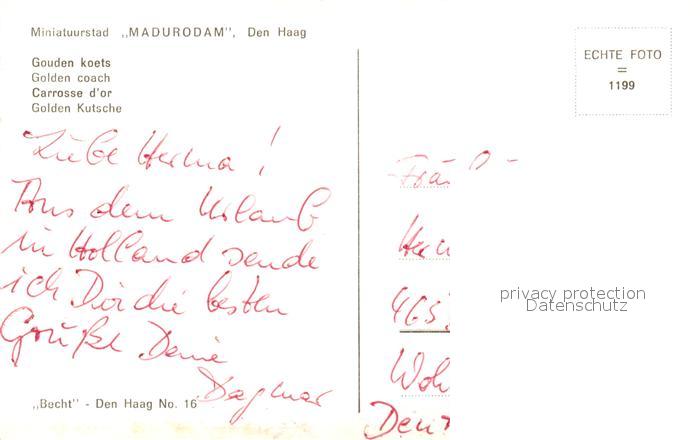 Miniatuurstad „MADURODAM", Den Haag
Gouden koets
Golden coach
Carrosse d'or
Golden Kutsche
ECHTE FOTO
=
1199
Liebe Herma!
Aus dem Urlaub
in Holland sende
ich Dir die besten
Grüße Deine
Dagmar
„Becht" - Den Haag No. 16
Fräul
Her
465
Woh
Deut
privacy protection
Datenschutz